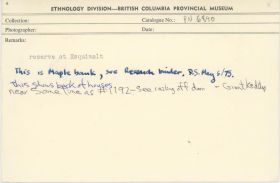 ETHNOLOGY DIVISION—BRITISH COLUMBIA PROVINCIAL MUSEUM
Collection: Catalogue No.: PN 6890
Photographer: Date:
Remarks:
reserve at Esquimalt
This is Maple bank, see Research binder. D.S. May 5/75.
this shows back of houses
near same time as #1192 - see railing off dam - Grant Keddie